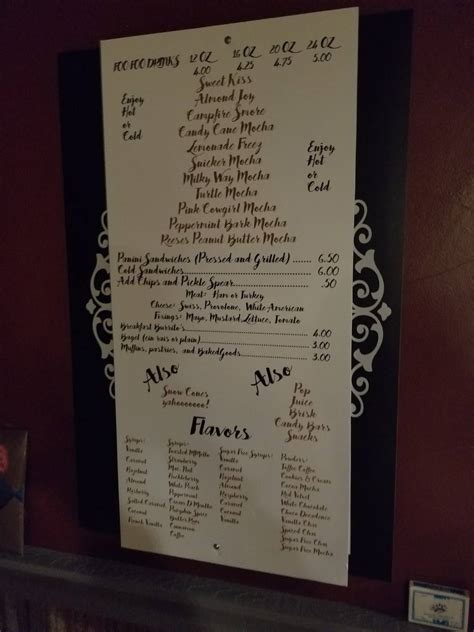 FOO FOO DRINKS 12 OZ 16 OZ 20 OZ 24 OZ
4.00 4.25 4.75 5.00
Enjoy
Hot
or
Cold
Sweet Kiss
Almond Joy
Campfire Smore
Candy Cane Mocha
Lemonade Freez
Snicker Mocha
Milky Way Mocha
Turtle Mocha
Pink Cowgirl Mocha
Peppermint Bark Mocha
Reeses Peanut Butter Mocha
Enjoy
Hot
or
Cold
Panini Sandwiches (Pressed and Grilled) ...... 6.50
Cold Sandwiches........ 6.00
Add Chips and Pickle Spear........ .50
Meat: Ham or Turkey
Cheese: Swiss, Provolone, White American
Fixings: Mayo, Mustard, Lettuce, Tomato
Breakfast Burrito's........ 4.00
Bagel (cin rais or plain)........ 3.00
Muffins, pastries, and Baked Goods........ 3.00
Also
Snow Cones
yahoooooo!
Also
Pop
Juice
Brisk
Candy Bars
Snacks
Flavors
Syrups:
Vanilla
Caramel
Hazelnut
Almond
Rasberry
Salted Caramel
Coconut
French Vanilla
Syrups:
Strawberry
Mac. Nut
Huckleberry
White Peach
Peppermint
Creme De Menthe
Pumpkin Spice
Butter Rum
Cinnamon
Coffee
Sugar Free Syrups:
Vanilla
Caramel
Hazelnut
Almond
Raspberry
Caramel
Coconut
Vanilla
Powders:
Toffee Coffee
Cookies & Cream
Cocoa Mocha
Red Velvet
White Chocolate
Choco Decadence
Vanilla Chai
Spiced Chai
Sugar Free Chai
Sugar Free Mocha